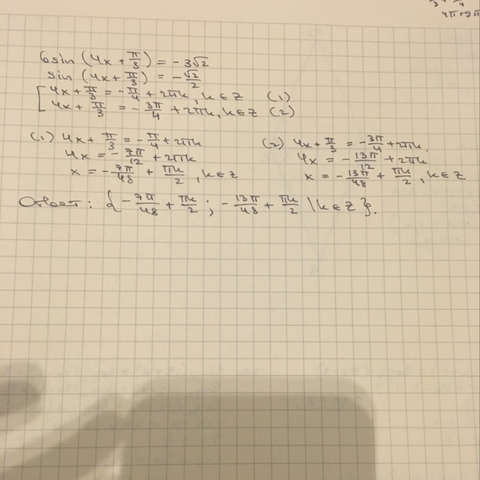 4π+9π
6sin (4x + π/3) = -3√2
sin (4x + π/3) = -√2/2
[ 4x + π/3 = -π/4 + 2πk, k∈Z (1)
4x + π/3 = -3π/4 + 2πk, k∈Z (2)
(1) 4x + π/3 = -π/4 + 2πk
4x = -7π/12 + 2πk
x = -7π/48 + πk/2, k∈Z
(2) 4x + π/3 = -3π/4 + 2πk.
4x = -13π/12 + 2πk
x = -13π/48 + πk/2, k∈Z
Ответ: {-7π/48 + πk/2; -13π/48 + πk/2 | k∈Z}.